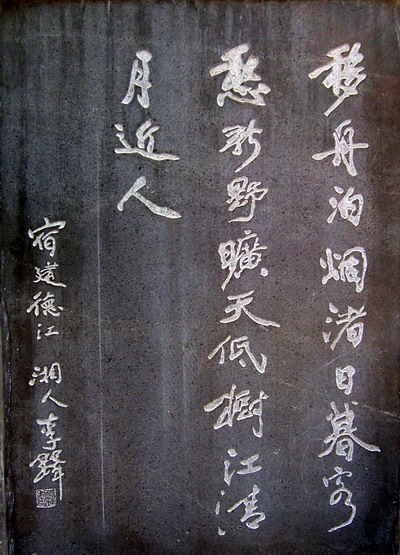 移舟泊烟渚日暮客
愁新野曠天低樹江清
月近人
宿建德江 湘人李鐸